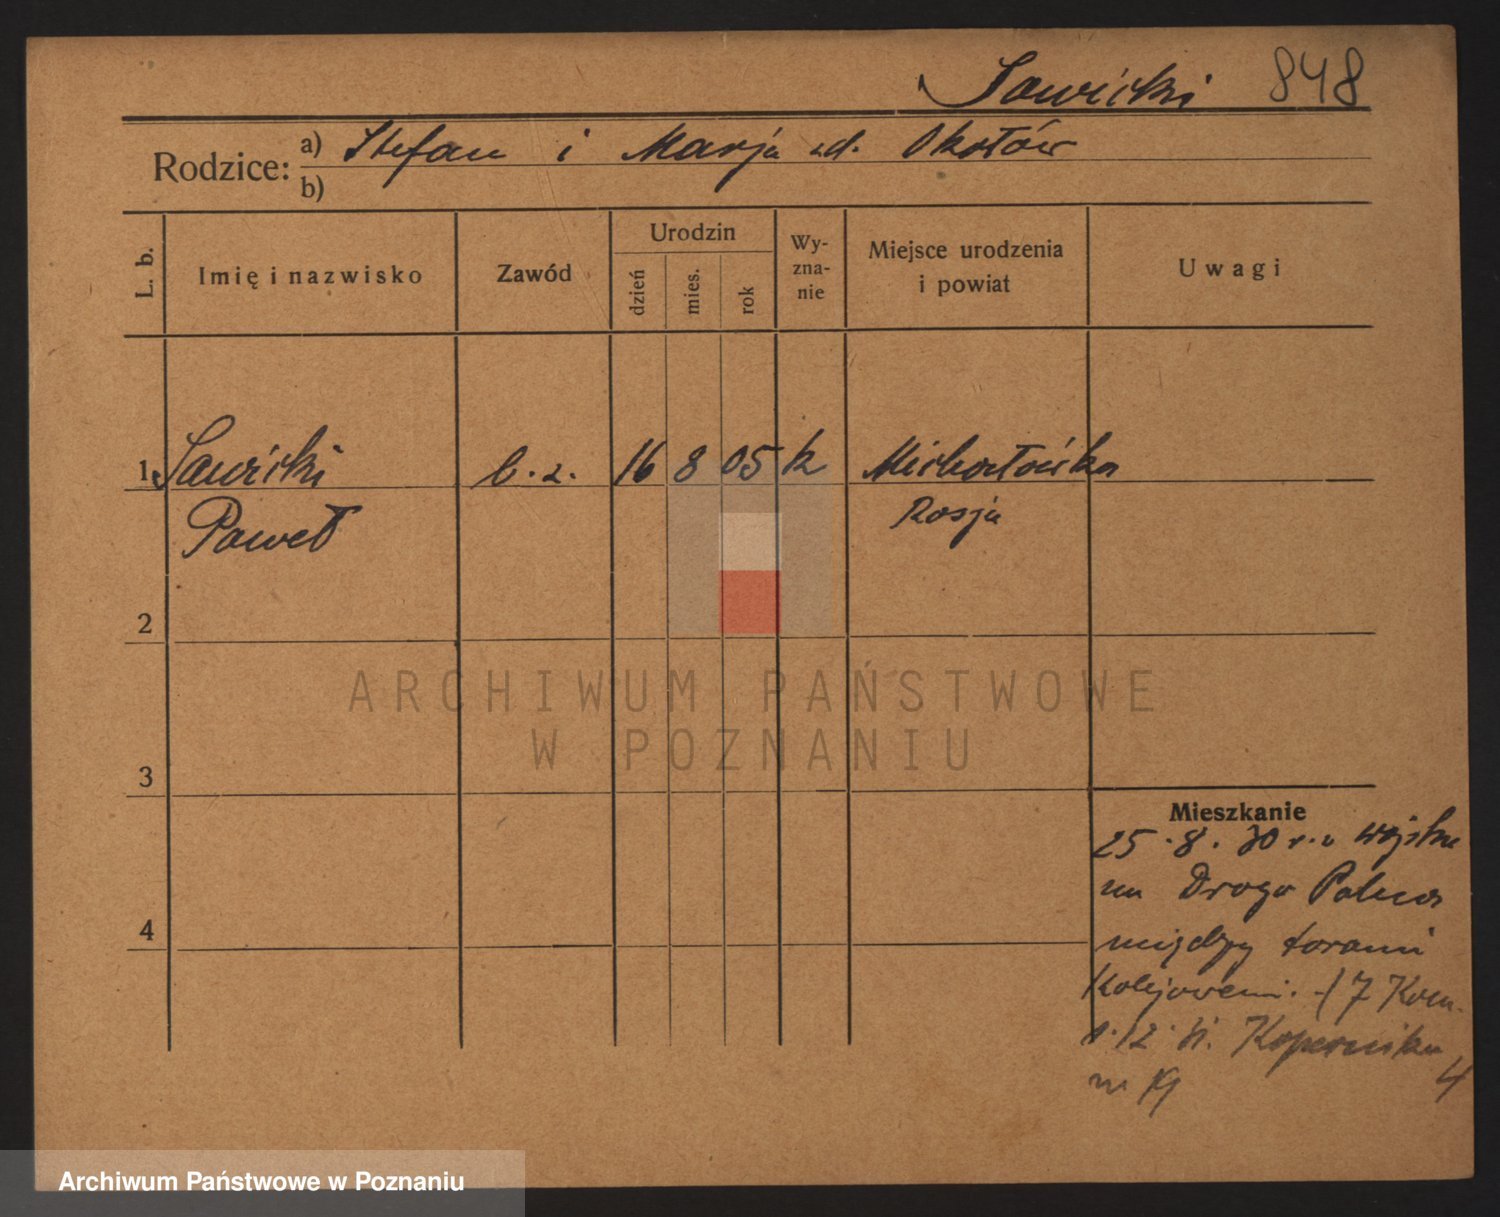 Sawicki 848
Rodzice: a) Stefan i Marja zd. Okołów
b)
L. b. Imię i nazwisko Zawód Urodzin dzień mies. rok Wy-zna-nie Miejsce urodzenia i powiat Uwagi
1. Sawicki b. z. 16 8 05 k Michałówka
Paweł Rosja
2
3
4
ARCHIWUM PAŃSTWOWE
W POZNANIU
Mieszkanie
25. 8. 30 r.
na Droga
między torami
kolejowemi. 7 Kom.
Kopernika
4
Archiwum Państwowe w Poznaniu